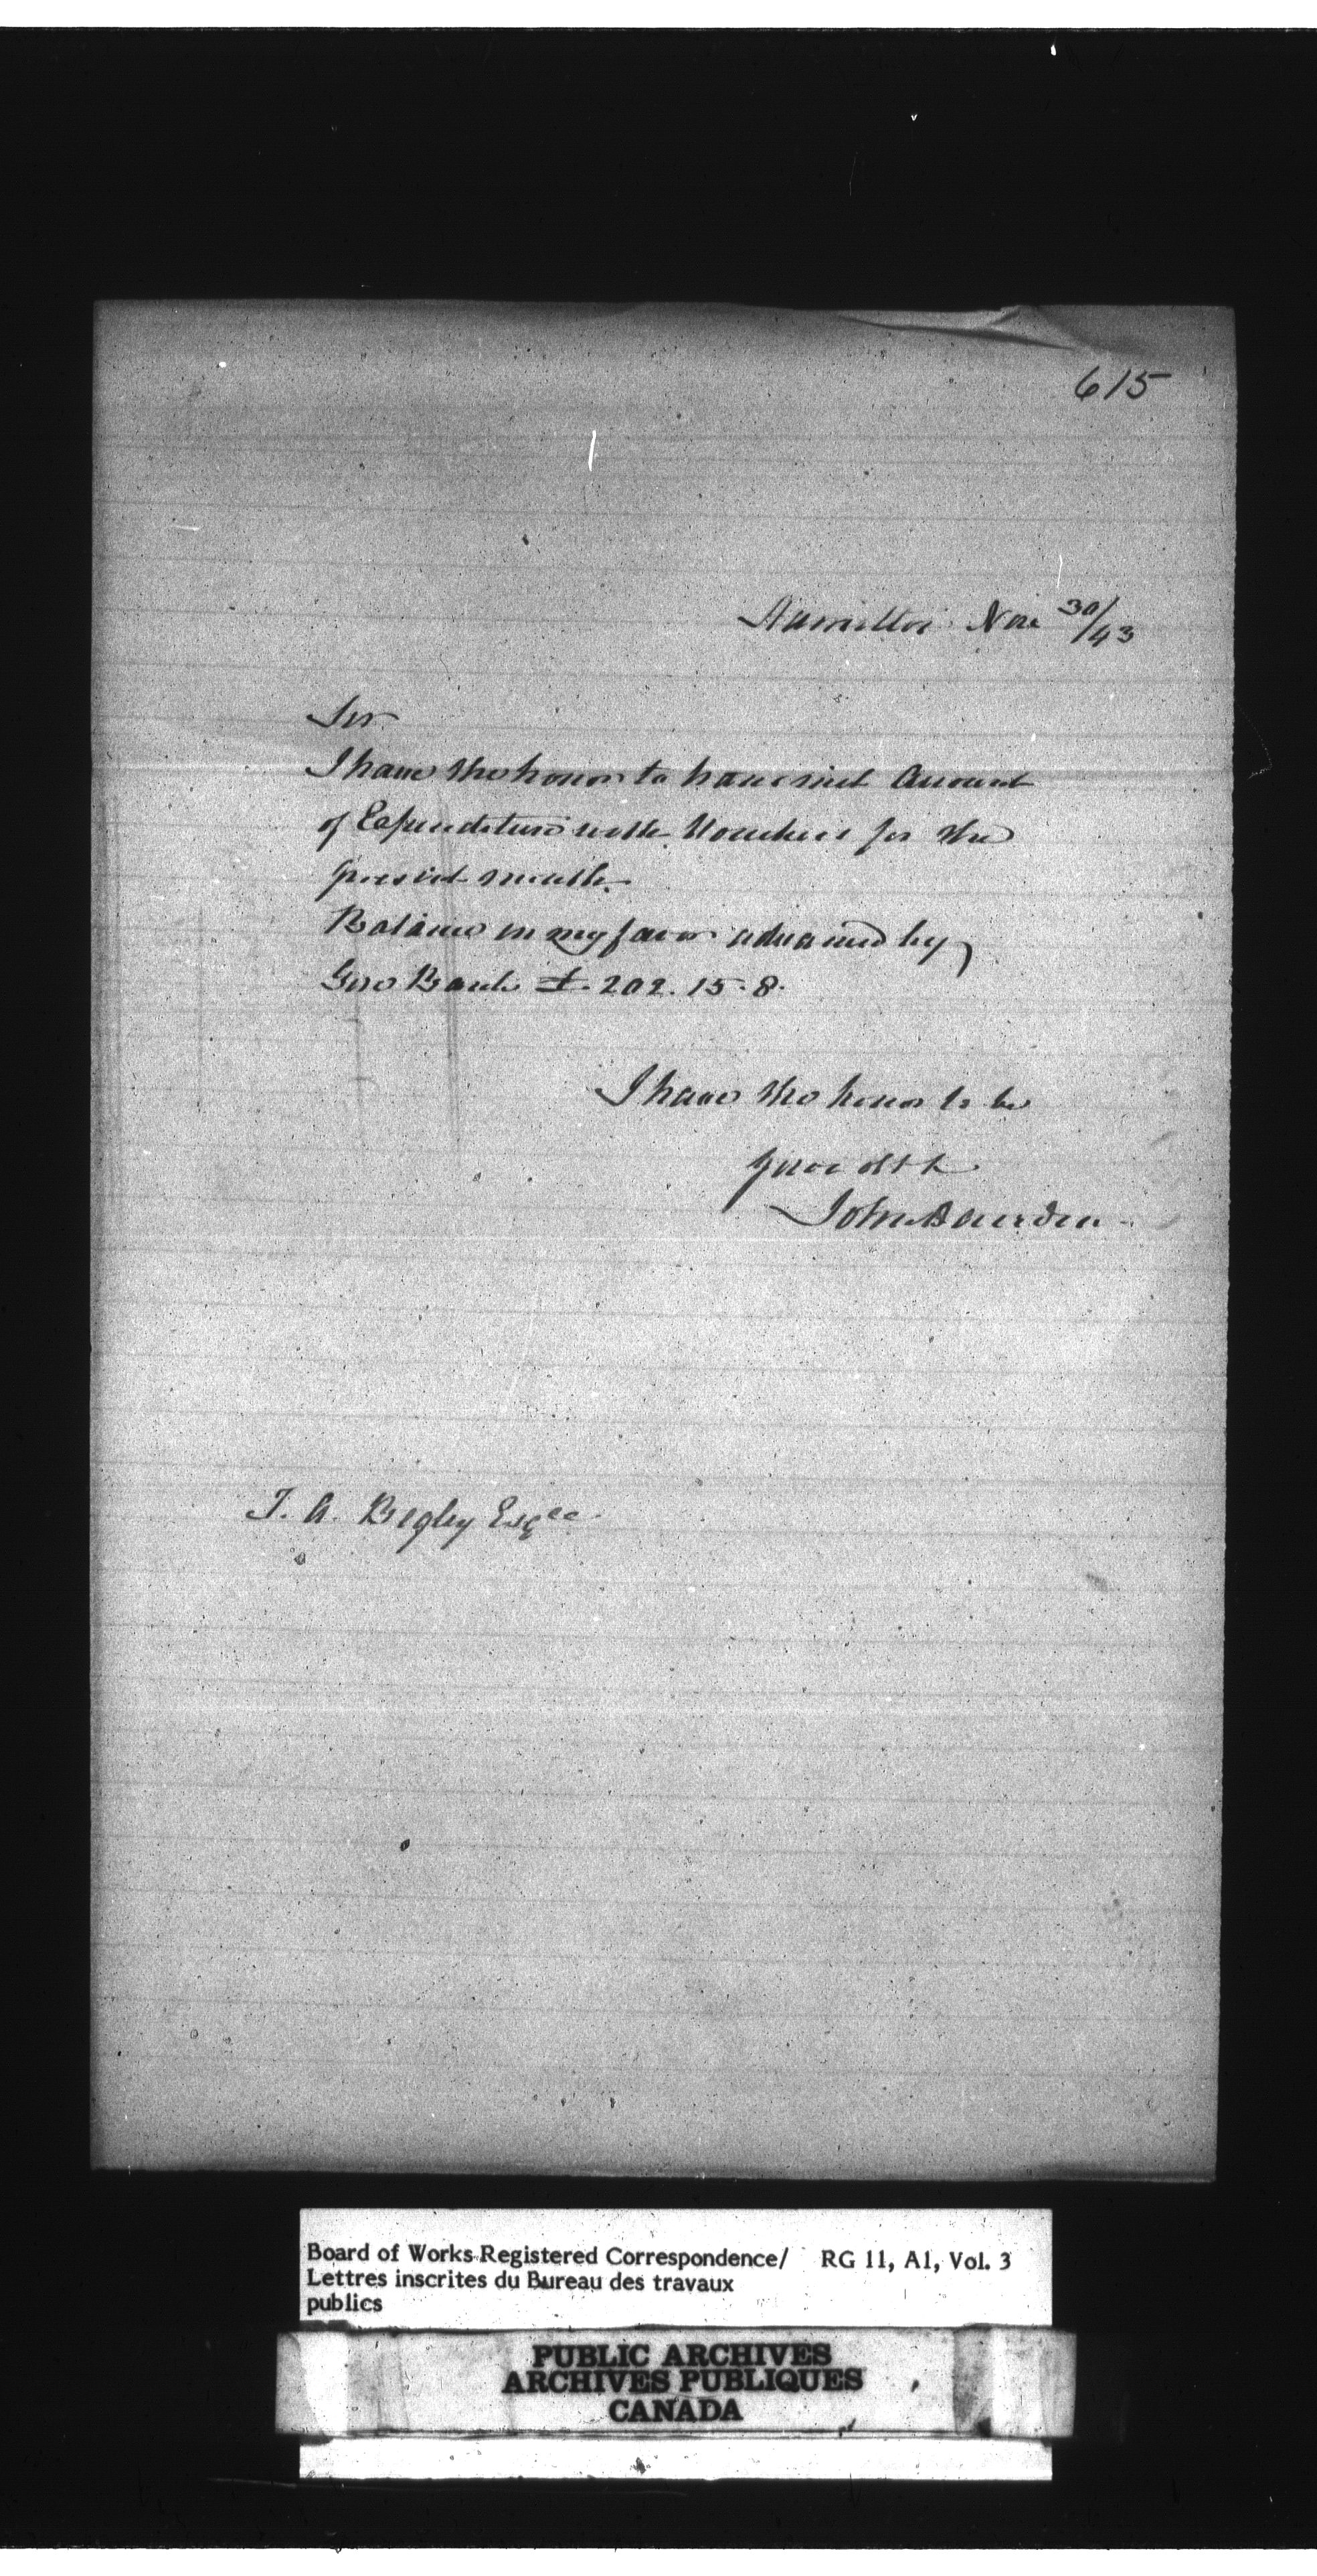 615
Hamilton Nov 30/43
Sir
I have the honor to transmit Account
of Expenditure with Vouchers for the
present month.
Balance in my favor advanced by
Gore Bank £. 202. 15. 8.
I have the honor to be
your obt
John
T. A. Begly Esqre
Board of Works Registered Correspondence/ RG 11, A1, Vol. 3
Lettres inscrites du Bureau des travaux
publics
PUBLIC ARCHIVES
ARCHIVES PUBLIQUES
CANADA